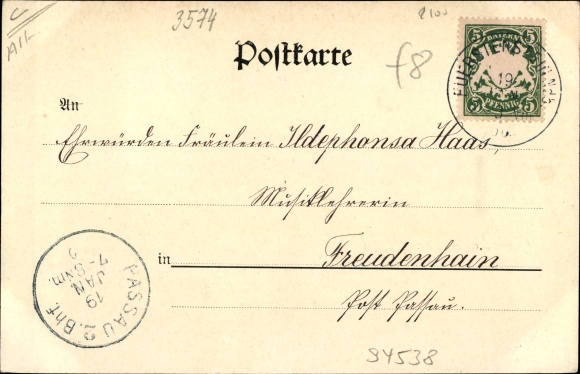 3574
A1L
f8
Postkarte
BAYERN
5 5
5 PFENNIG 5
19
An
Ehrwürden Fräulein Ildephonsa Haas,
Musiklehrerin
in Freudenhain
Post Passau.
PASSAU 2. Bhf.
19
JAN
7-8 Vm.
94538